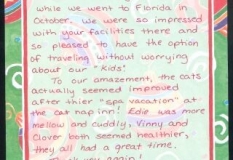 while we went to Florida in
October. We were so impressed
with your facilities there and
so pleased to have the option
of traveling without worrying
about our "Kids"
To our amazement, the cats
actually seemed improved
after thier "spa vacation" at the
cat nap inn! Edie was more
mellow and cuddly, Vinny and
Clover both seemed healthier,
they all had a great time.